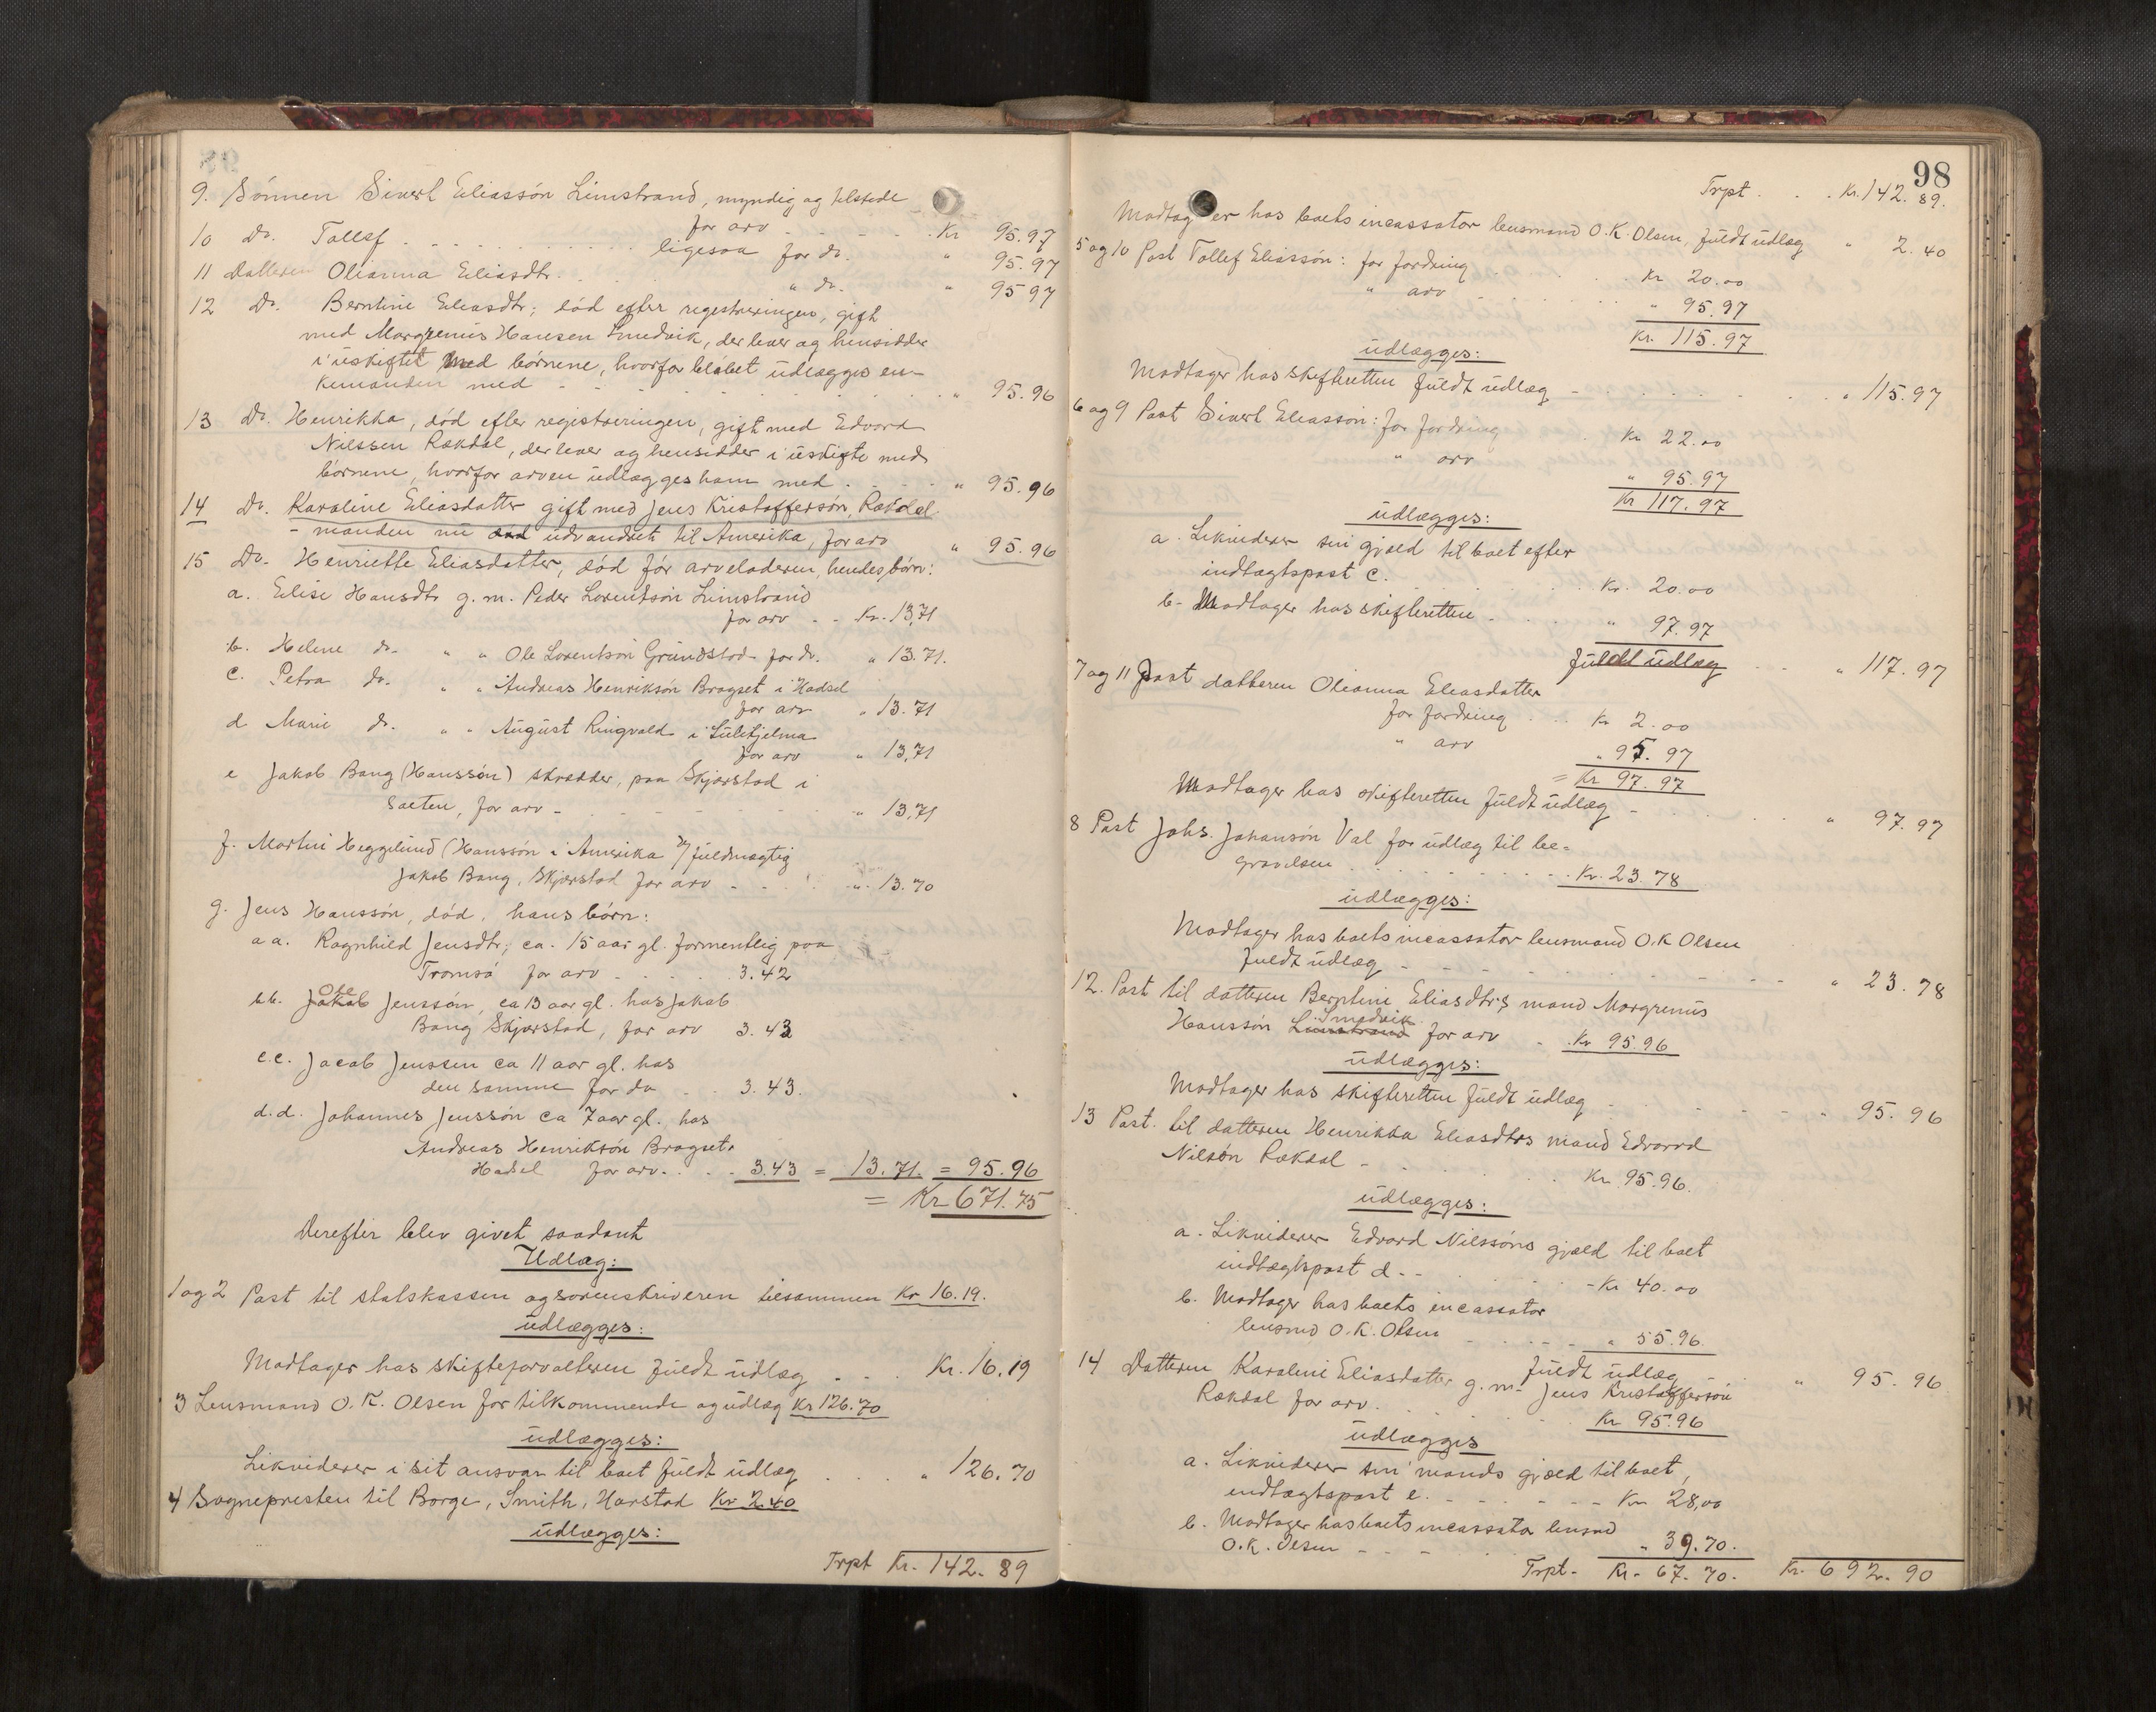 9. Sønnen Sivert Eliassøn Limstrand, myndig og tilstede
for arv - - - - - Kr 95.97
10 Do. Tollef . . . . . . . . . . ligesaa for do. " 95.97
11 Datteren Olianna Eliasdtr. . . . " do. " 95 97
12 Do. Berntine Eliasdtr; død efter registreringen, gift
med Margrenius Hansen Smedvik, der lever og hensidder
i uskiftet med børnene, hvorfor beløbet udlægges en-
kemanden med - . . . . . . . . " 95.96
13 Do. Henrikka, død efter registreringen, gift med Edvard
Nilssen Rækdal, der lever og hensidder i uskifte med
børnene, hvorfor arven udlægges ham med . . . " 95.96
14 Do. Karoline Eliasdatter gift med Jens Kristoffersøn, Rækdal
- manden nu død udvandret til Amerika, for arv " 95.96
15 Do. Henriette Eliasdatter, død før arveladeren, hendes børn:
a. Elise Hansdtr g. m. Peder Lorentsøn Limstrand
for arv . . Kr. 13,71
b. Helene do. " " Ole Lorentsøn Grundstad for do. " 13.71.
c. Petra do. " " Andreas Henriksøn Bragset i Hadsel
for arv " 13.71
d Marie do. " " August Ringvald i Sulitjelma
for arv " 13,71
e Jakob Bang (Hanssøn) skrædder, paa Skjærstad i
Salten, for arv - - - - - - - " 13,71
f. Martin Heggelund (Hanssøn i Amerika v/ fuldmægtig
Jakob Bang, Skjærstad for arv - . . . " 13.70
g. Jens Hanssøn, død, hans børn:
aa. Ragnhild Jensdtr, ca. 15 aar gl. formentlig paa
Tromsø for arv - . . . 3.42
Ole
bb. Jakob Jenssøn, ca 13 aar gl. hos Jakob
Bang Skjærstad, for arv 3.43
c.c. Jacob Jenssen ca 11 aar gl. hos
den samme for do . . 3.43.
d.d. Johannes Jenssøn ca 7 aar gl. hos
Andreas Henriksøn Bragset.
Hadsel for arv. . . . 3.43 = 13.71. = 95.96
= Kr 671.75
Derefter blev givet saadant
Udlæg:
1 og 2 Post til statskassen og sorenskriveren tilsammen Kr 16.19.
udlægges:
Modtager hos skifteforvalteren fuldt udlæg . . . Kr. 16.19
3 Lensmand O. K. Olsen for tilkommende og udlæg Kr 126.70
udlægges:
Likviderer i sit ansvar til boet fuldt udlæg . . . " 126.70
4 Sognepresten til Borge, Smith, Harstad Kr 2.40
udlægges:
Trpt Kr. 142.89
98
Trpt . . . Kr. 142.89.
Modtager hos boets incassator lensmand O. K. Olsen, fuldt udlæg " 2.40
5 og 10 Post Tollef Eliassøn: for fordring . . . Kr 20.00
" arv . . . . " 95.97
Kr. 115.97
udlægges:
Modtager hos skifteretten fuldt udlæg - . . . . . . " 115.97
6 og 9 Post Sivert Eliassøn: for fordring . Kr 22.00
" arv " 95.97
Kr 117.97
udlægges:
a. Likviderer sin gjæld til boet efter
indtægtspost c. . . . . . . Kr. 20.00
b. Modtager hos skifteretten - . . . " 97.97
fuldt udlæg . . " 117.97
7 og 11 Post datteren Olianna Eliasdatter
for fordring . . . Kr 2.00
" arv " 95.97
= Kr 97.97
Modtager hos skifteretten fuldt udlæg - . . . . " 97.97
8 Post Johs. Johansøn Val for udlæg til be-
gravelsen . . . . . . - - - . Kr. 23.78
udlægges:
Modtager hos boets incassator lensmand O. K Olsen
fuldt udlæg - - - - - - - - - " 23.78
12. Post til datteren Berntine Eliasdtr's mand Margrenius
Smedvik
Hanssøn Limstrand for arv - Kr 95.96
udlægges:
Modtager hos skifteretten fuldt udlæg . . - - - - " 95.96
13 Post. til datteren Henrikka Eliasdtrs mand Edvard
Nilsøn Rækdal - . . . . . . Kr 95.96.
udlægges:
a. Likviderer Edvard Nilssøns gjæld til boet
indtægtspost d. - - . . . . - Kr 40.00
b. Modtager hos boets incassator
lensmd O. K. Olsen - - - - " 55.96.
fuldt udlæg - . " 95.96
14 Datteren Karoline Eliasdatter g. m. Jens Kristoffersøn
Rækdal for arv . . . . . . Kr 95.96
udlægges
a. Likviderer sin mands gjæld til boet,
indtægtspost e. - - - - - - - Kr 28,00
b. Modtager hos boets incassator lensmd
O. K. Olsen - - - - . " 39.70.
Trpt - Kr. 67.70. Kr. 692.90